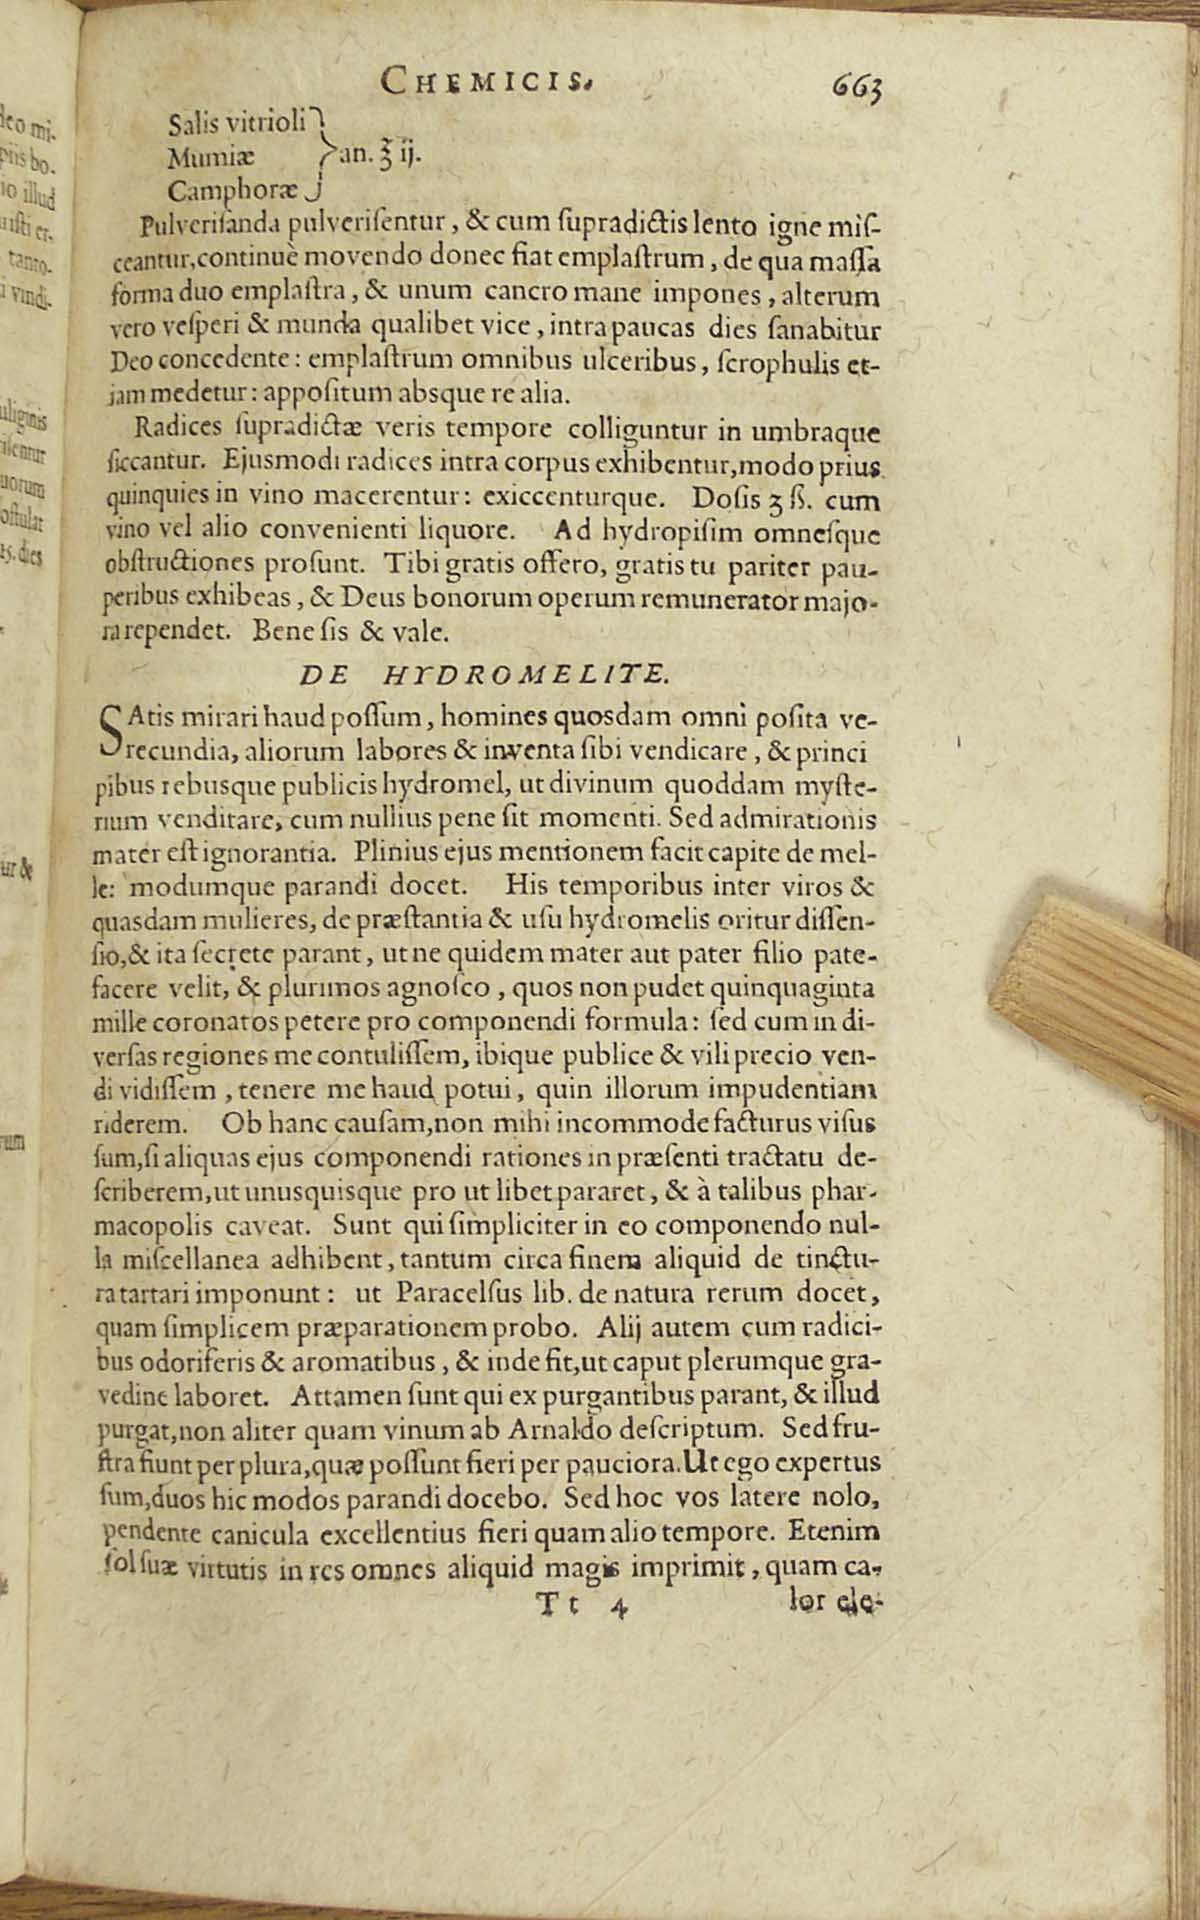 CHEMICIS. 663
Salis vitrioli
Mumiæ } an. ℥ ij.
Camphoræ
Pulveriſanda pulveriſentur, & cum ſupradictis lento igne miſ-
ceantur, continuè movendo donec fiat emplaſtrum, de qua maſſa
forma duo emplaſtra, & unum cancro mane impones, alterum
vero veſperi & munda qualibet vice, intra paucas dies ſanabitur
Deo concedente: emplaſtrum omnibus ulceribus, ſcrophulis et-
jam medetur: appoſitum absque re alia.
Radices ſupradictæ veris tempore colliguntur in umbraque
ſiccantur. Ejusmodi radices intra corpus exhibentur, modo prius
quinquies in vino macerentur: exiccenturque. Doſis ʒ ß. cum
vino vel alio convenienti liquore. Ad hydropiſim omneſque
obſtructiones proſunt. Tibi gratis offero, gratis tu pariter pau-
peribus exhibeas, & Deus bonorum operum remunerator majo-
ra rependet. Bene ſis & vale.
DE HYDROMELITE.
SAtis mirari haud poſſum, homines quosdam omni poſita ve-
recundia, aliorum labores & inventa ſibi vendicare, & princi
pibus rebusque publicis hydromel, ut divinum quoddam myſte-
rium venditare, cum nullius pene ſit momenti. Sed admirationis
mater eſt ignorantia. Plinius ejus mentionem facit capite de mel-
le: modumque parandi docet. His temporibus inter viros &
quasdam mulieres, de præſtantia & uſu hydromelis oritur diſſen-
ſio, & ita ſecrete parant, ut ne quidem mater aut pater filio pate-
facere velit, & plurimos agnoſco, quos non pudet quinquaginta
mille coronatos petere pro componendi formula: ſed cum in di-
verſas regiones me contuliſſem, ibique publice & vili precio ven-
di vidiſſem, tenere me haud potui, quin illorum impudentiam
riderem. Ob hanc cauſam, non mihi incommode facturus viſus
ſum, ſi aliquas ejus componendi rationes in præſenti tractatu de-
ſcriberem, ut unusquisque pro ut libet pararet, & à talibus phar-
macopolis caveat. Sunt qui ſimpliciter in eo componendo nul-
la miſcellanea adhibent, tantum circa finem aliquid de tinctu-
ra tartari imponunt: ut Paracelſus lib. de natura rerum docet,
quam ſimplicem præparationem probo. Alij autem cum radici-
bus odoriferis & aromatibus, & inde fit, ut caput plerumque gra-
vedine laboret. Attamen ſunt qui ex purgantibus parant, & illud
purgat, non aliter quam vinum ab Arnaldo deſcriptum. Sed fru-
ſtra fiunt per plura, quæ poſſunt fieri per pauciora. Ut ego expertus
ſum, duos hic modos parandi docebo. Sed hoc vos latere nolo,
pendente canicula excellentius fieri quam alio tempore. Etenim
ſol ſuæ virtutis in res omnes aliquid magis imprimit, quam ca-
Tt 4 lor ele-